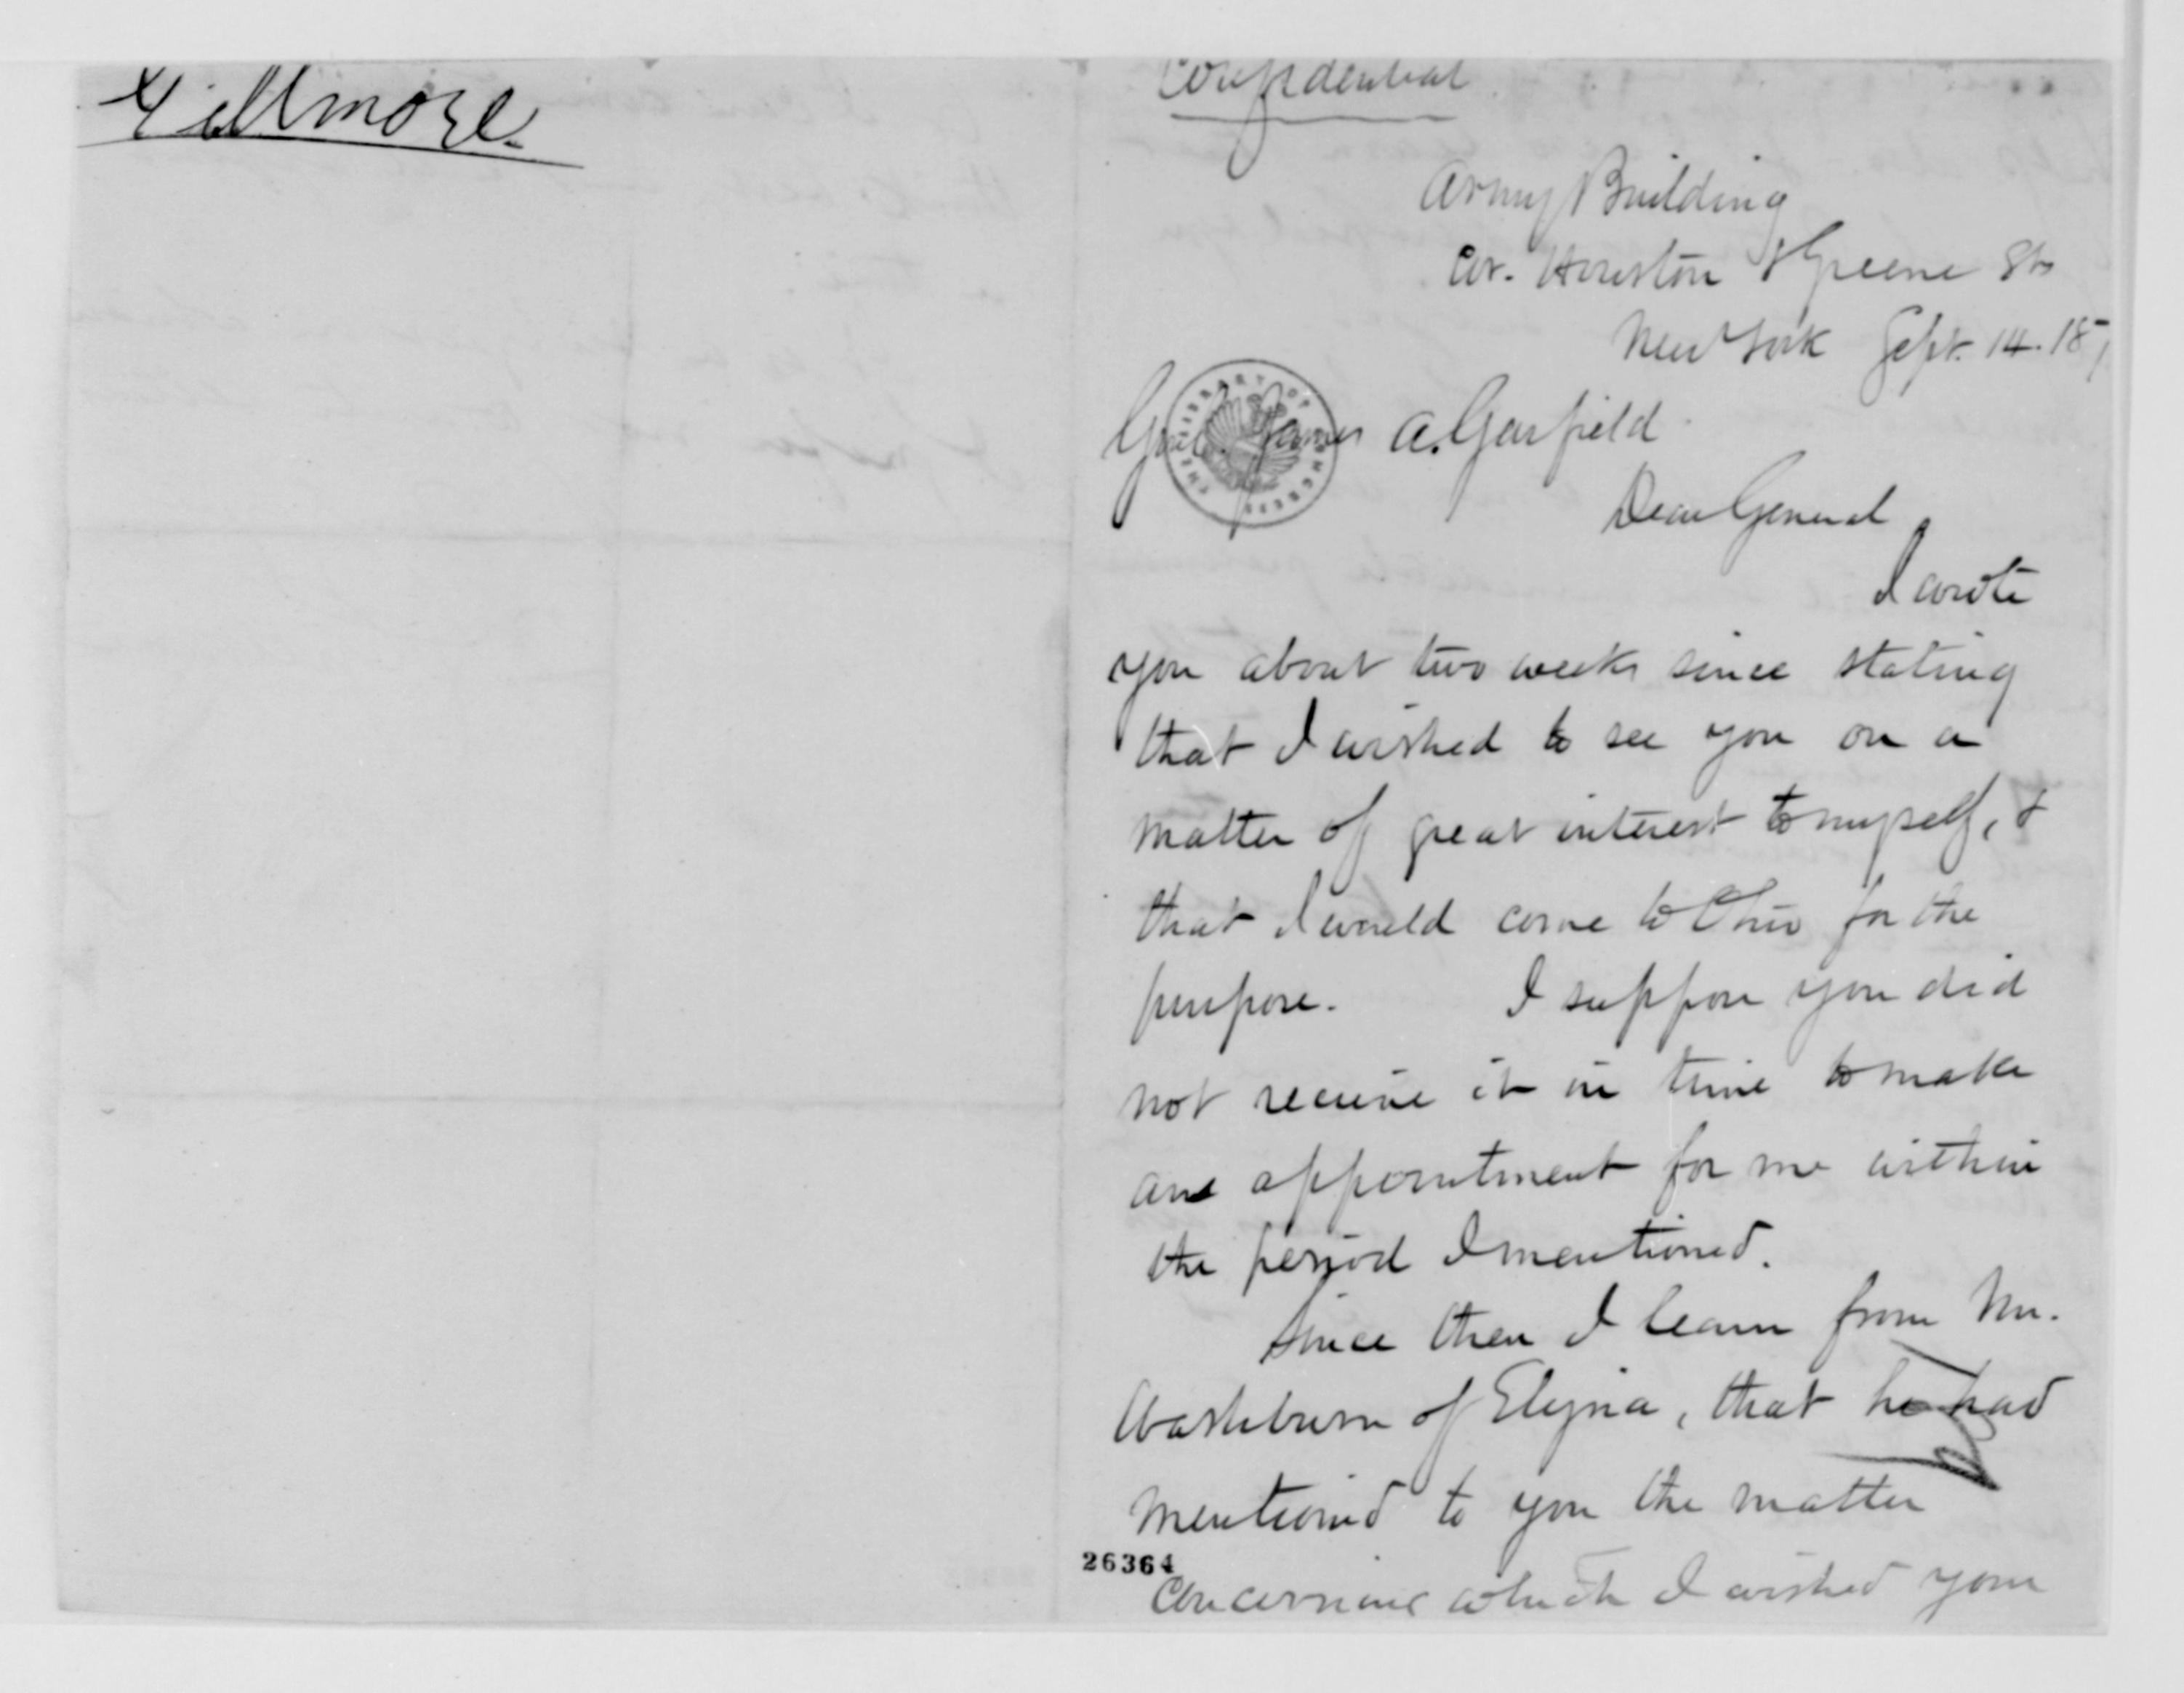 Gillmore.
Confidential
Army Building
Cor. Houston & Greene Sts
New York Sept. 14. 187
Genl. James A. Garfield
THE LIBRARY OF CONGRESS
Dear General
I wrote
you about two weeks since stating
that I wished to see you on a
matter of great interest to myself, &
that I would come to Ohio for the
purpose. I suppose you did
not receive it in time to make
an appointment for me within
the period I mentioned.
Since then I learn from Mr.
Washburn of Elyria, that he had
mentioned to you the matter
26364
concerning which I wished your